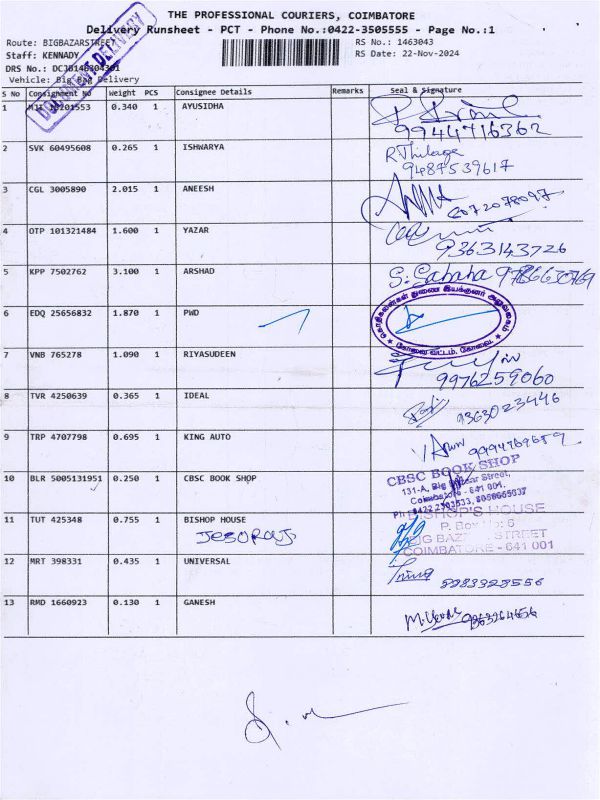 THE PROFESSIONAL COURIERS, COIMBATORE
Delivery Runsheet - PCT - Phone No.:0422-3505555 - Page No.:1
Route: BIGBAZARSTREET
RS No.: 1463043
Staff: KENNADY
RS Date: 22-Nov-2024
DRS No.:
Vehicle: Big Bag Delivery
DOCUMENT DELIVERY
S No Consignment No Weight PCS Consignee Details Remarks Seal & Signature
1 0.340 1 AYUSIDHA
9944716362
2 SVK 60495608 0.265 1 ISHWARYA
R Thilaga
9487539617
3 CGL 3005890 2.015 1 ANEESH
4 OTP 101321484 1.600 1 YAZAR
9363143726
5 KPP 7502762 3.100 1 ARSHAD
6 EDQ 25656832 1.870 1 PWD
7 VNB 765278 1.090 1 RIYASUDEEN
9976259060
8 TVR 4250639 0.365 1 IDEAL
9363023446
9 TRP 4707798 0.695 1 KING AUTO
10 BLR 5005131951 0.250 1 CBSC BOOK SHOP
CBSC BOOK SHOP
131-A, Big Bazaar Street,
Coimbatore - 641 001.
11 TUT 425348 0.755 1 BISHOP HOUSE
BISHOP'S HOUSE
P. Box No: 6
BIG BAZAR STREET
COIMBATORE - 641 001
12 MRT 398331 0.435 1 UNIVERSAL
13 RMD 1660923 0.130 1 GANESH